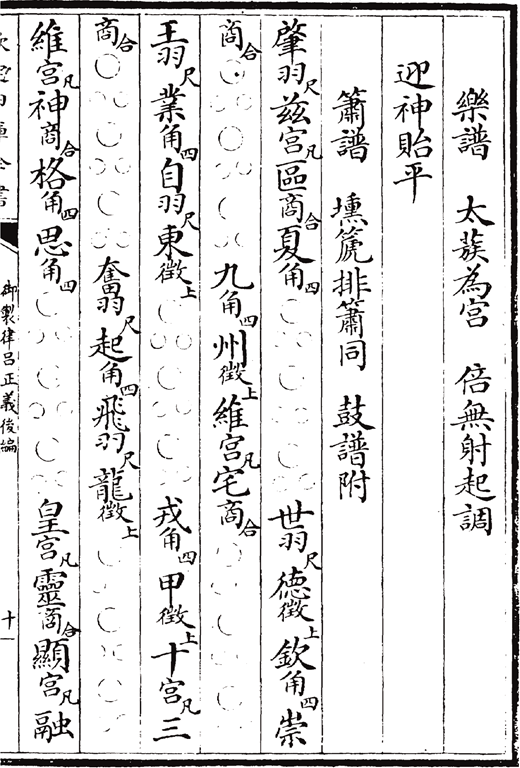 樂譜　太蔟為宫　倍無射起調
迎神貽平
簫譜　壎篪排簫同　鼓譜附
肇羽尺兹宫凡區商合夏角四　世羽尺德徵上欽角四崇
商合　九角四州徵上維宫凡宅商合
王羽尺業角四自羽尺東徵上　戎角四甲徵上十宫凡三
商合　奮羽尺起角四飛羽尺龍徵上
維宫凡神商合格角四思角四　皇宫凡靈商合顯宫凡融
御製律吕正義後編　十一